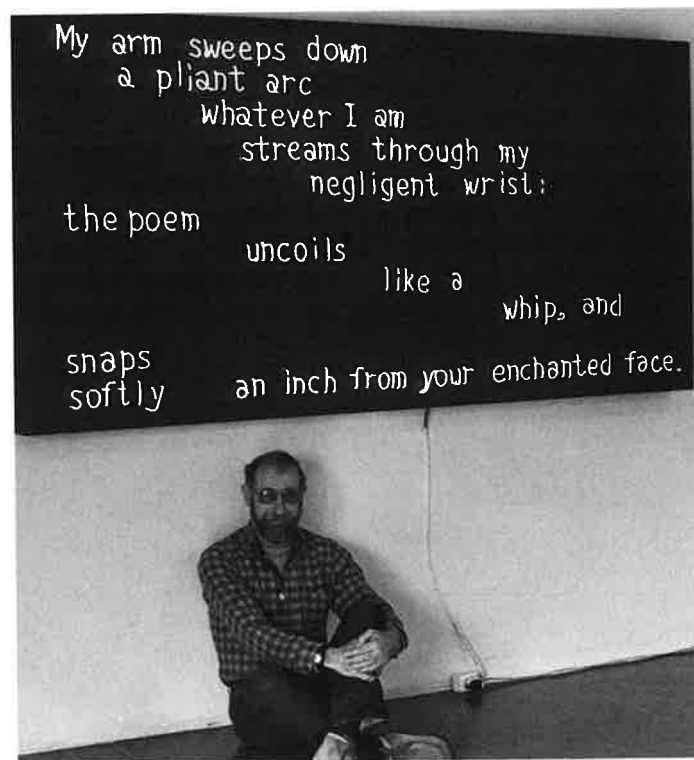 My arm sweeps down
a pliant arc
whatever I am
streams through my
negligent wrist:
the poem
uncoils
like a
whip, and
snaps
softly an inch from your enchanted face.